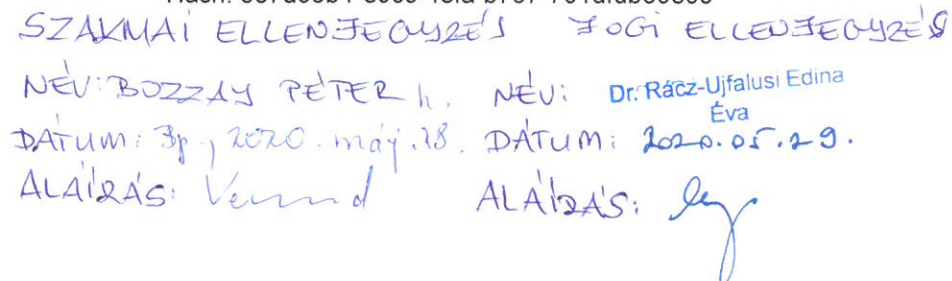 SZAKMAI ELLENJEGYZÉS JOGI ELLENJEGYZÉS
NÉV: BOZZAY PÉTER h. NÉV: Dr. Rácz-Ujfalusi Edina
Éva
DÁTUM: Bp., 2020. máj. 28. DÁTUM: 2020.05.29.
ALÁÍRÁS: ALÁÍRÁS: